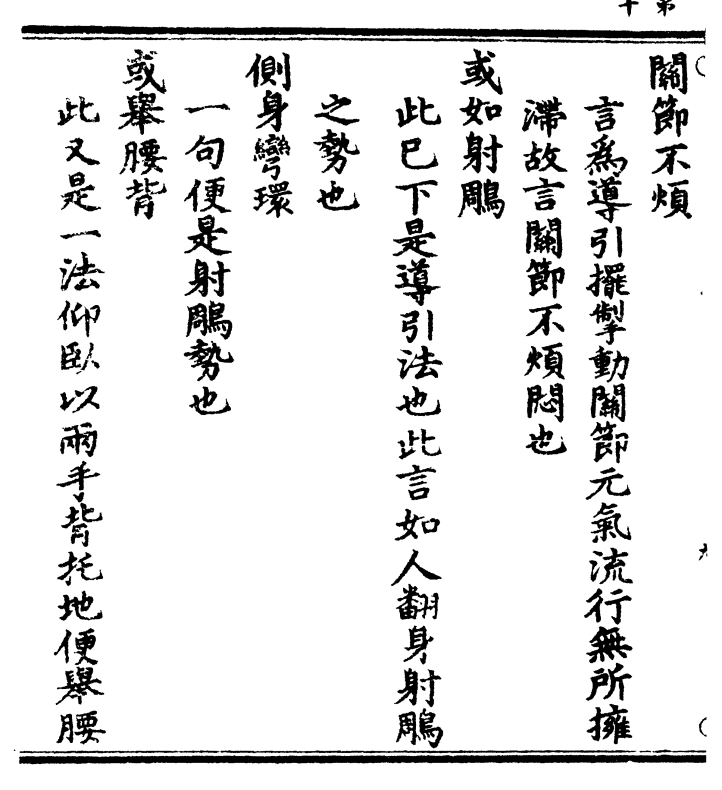 關節不煩
言爲導引擺掣動關節元氣流行無所擁
滯故言關節不煩悶也
或如射鵰
此已下是導引法也此言如人翻身射鵰
之勢也
側身彎環
一句便是射鵰勢也
或舉腰背
此又是一法仰臥以兩手背托地便舉腰